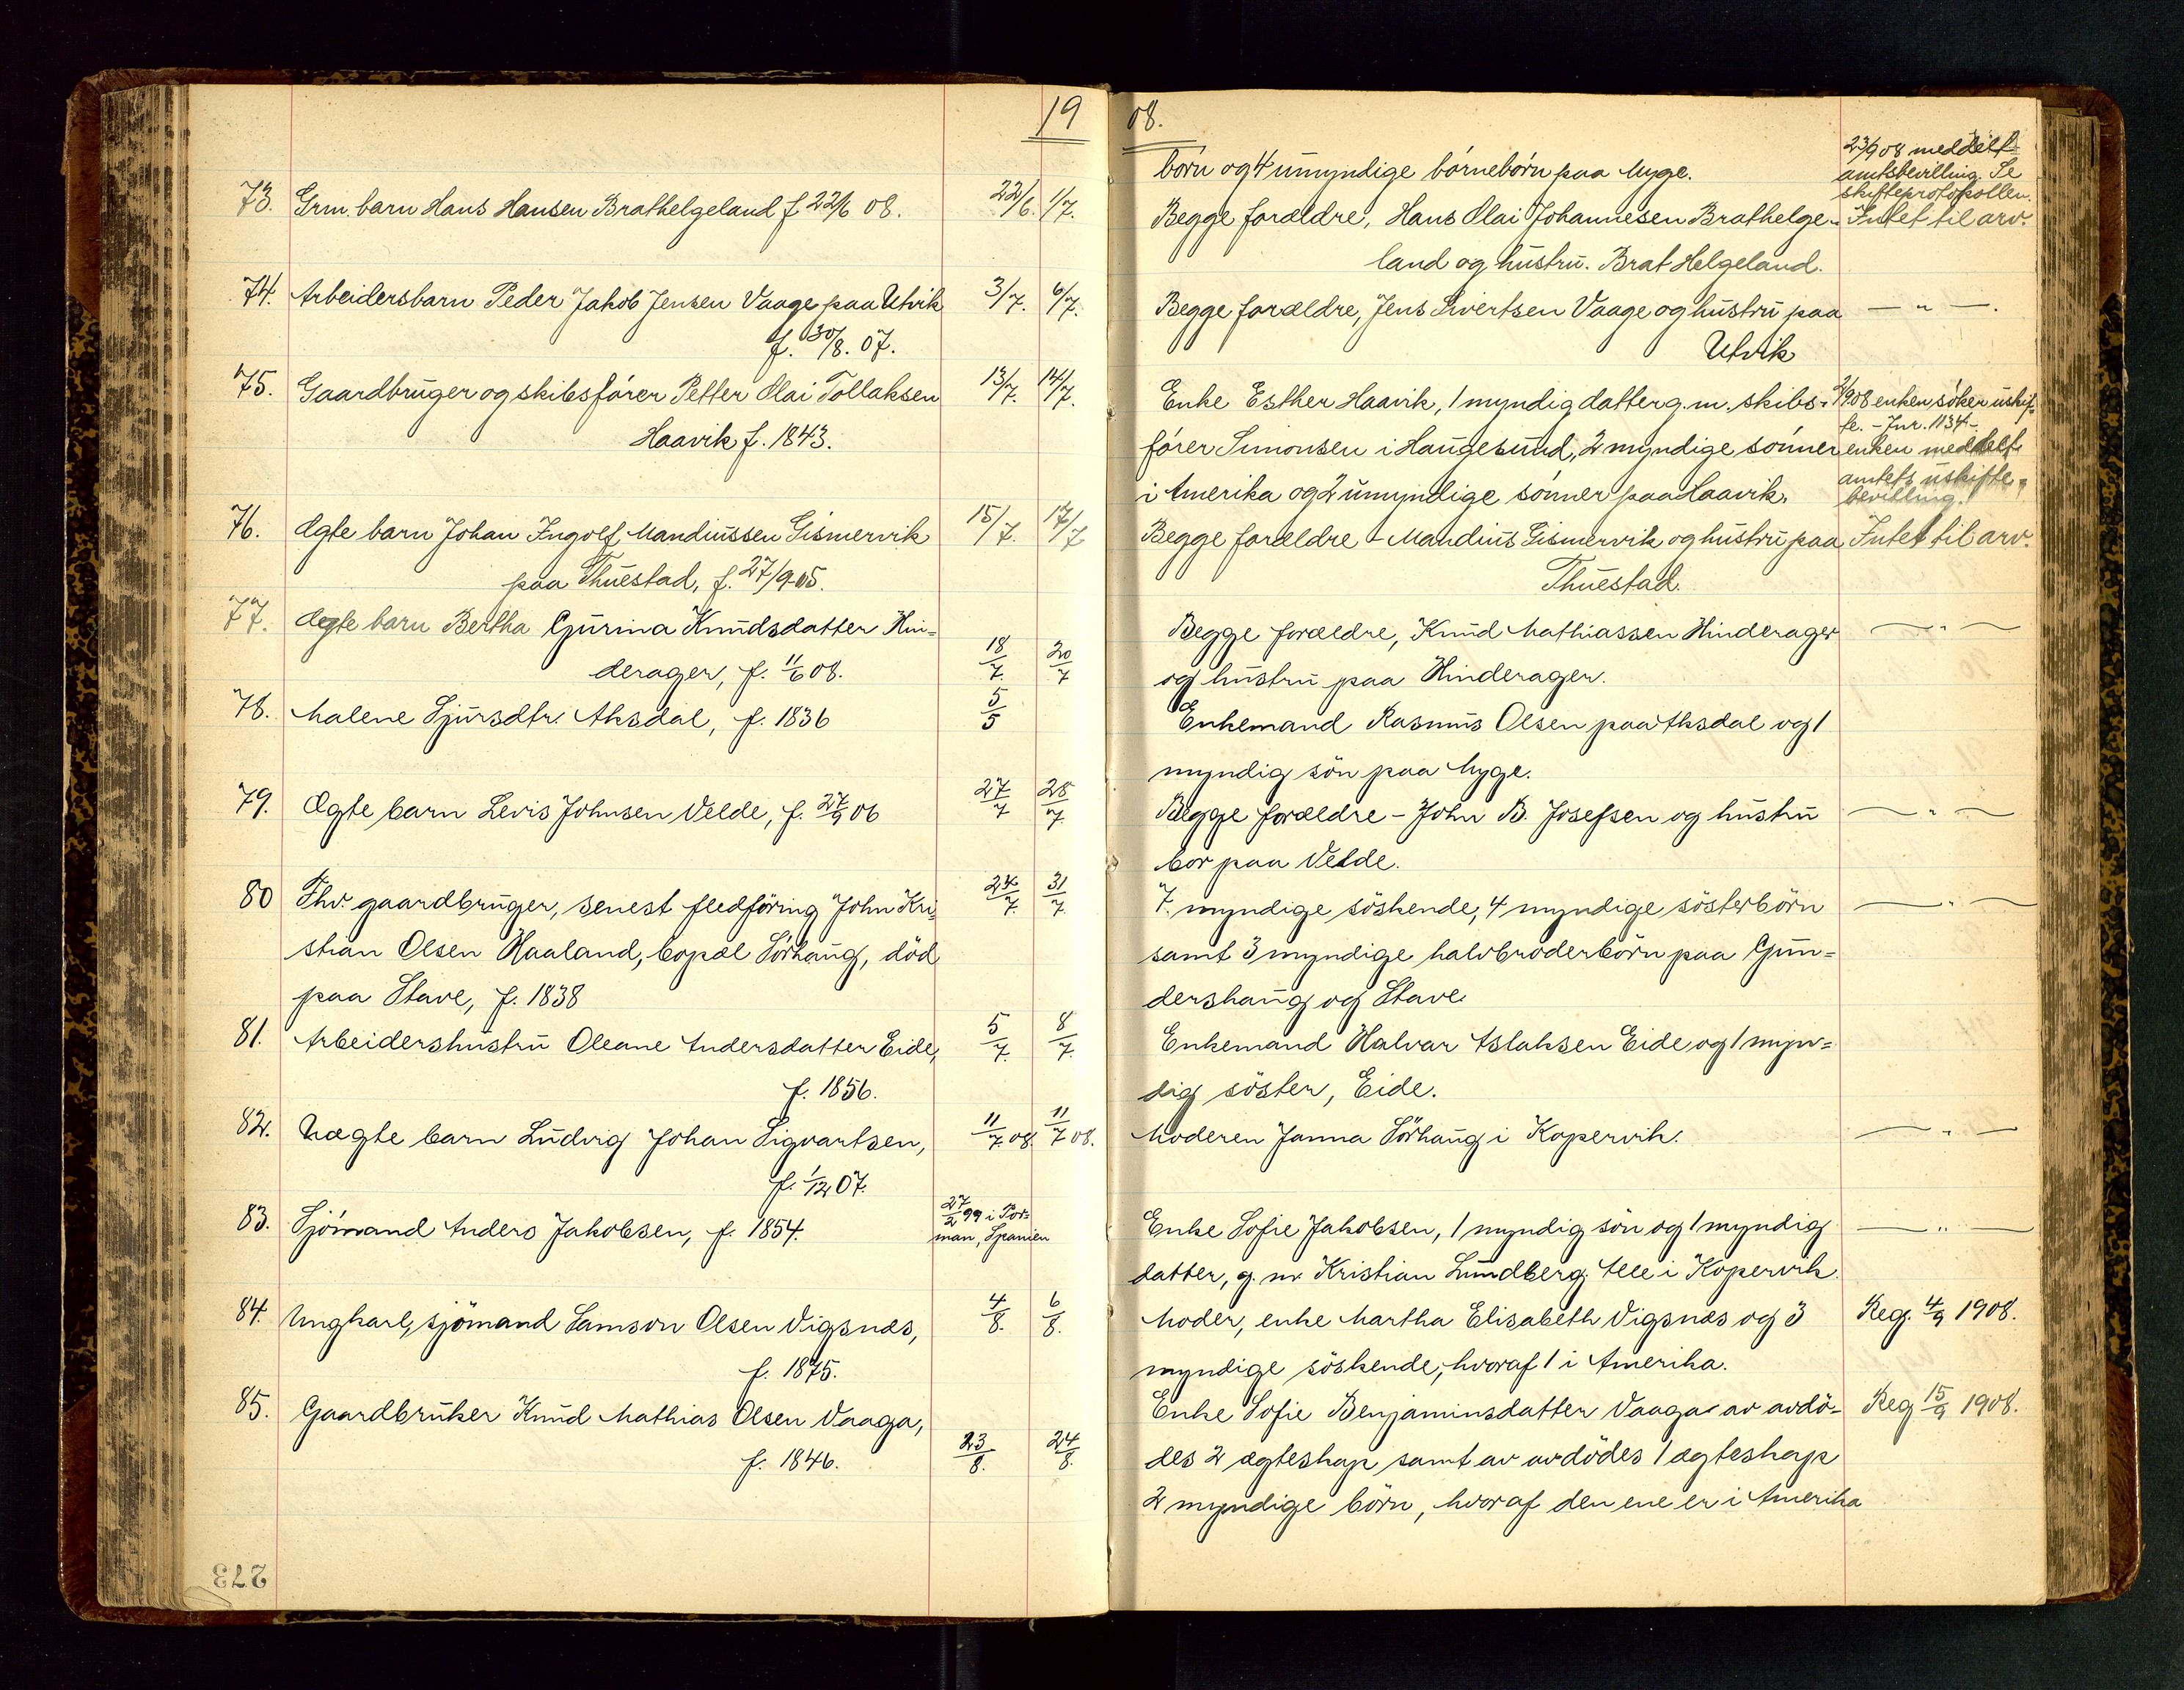 1908.
börn og 4 umyndige börnebörn paa Myge.
23/9 08 meddelt
amtsbevilling. Se
skifteprotokollen.
73. Grm. barn Hans Hansen Brathelgeland f 22/6 08. 22/6. 1/7.
Begge forældre, Hans Olai Johannesen Brathelge- Intet til arv.
land og hustru. Brat Helgeland.
74. Arbeidersbarn Peder Jakob Jensen Vaage paa Utvik 3/7. 6/7.
f. 30/8. 07.
Begge forældre, Jens Sivertsen Vaage og hustru paa — " —.
Utvik
75. Gaardbruger og skibsförer Petter Olai Tollaksen 13/7. 14/7.
Haavik f. 1843.
Enke Esther Haavik, 1 myndig datter g. m. skibs-
förer Simonsen i Haugesund, 2 myndige sönner
i Amerika og 2 umyndige sönner paa Haavik.
908 enken söker uskif-
te. - Jnr. 1134 -
enken meddelt
amtets uskifte-
bevilling.
76. Ægte barn Johan Ingolf Mandiussen Gismervik 15/7. 17/7
paa Thuestad, f. 27/9-05.
Begge forældre - Mandius Gismervik og hustru paa Intet til arv.
Thuestad.
77. Ægte barn Bertha Gjurina Knudsdatter Hin-
derager, f. 11/6 08. 18/7. 20/7
Begge forældre, Knud Mathiassen Hinderager — " —
og hustru paa Hinderager.
78. Malene Sjursdtr. Aksdal, f. 1836 5/5
Enkemand Rasmus Olsen paa Aksdal og 1
myndig sön paa Myge.
79. Ægte barn Levis Johnsen Velde, f. 27/9 06 27/7 28/7.
Begge forældre - John B. Josefsen og hustru — " —
bor paa Velde.
80 Fhv. gaardbruger, senest fledföring John Kri-
stian Olsen Haaland, bopæl Sörhaug, död
paa Stave, f. 1838 31/7.
7. myndige söskende, 4 myndige sösterbörn — " —
samt 3 myndige halvbroderbörn paa Gun-
dershaug og Stave.
81. Arbeidershustru Oleane Andersdatter Eide, 5/7. 8/7.
f. 1856.
Enkemand Halvar Aslaksen Eide og 1 myn-
dig söster, Eide.
82. Uægte barn Ludvig Johan Sigvartsen, 11/7 08. 11/7 08.
f. 1/12 07.
Moderen Janna Sörhaug i Kopervik. — " —
83. Sjömand Anders Jakobsen, f. 1854. 27/2 99 i Por-
man, Spanien
Enke Sofie Jakobsen, 1 myndig sön og 1 myndig — " —
datter, g. m. Kristian Lundberg. Alle i Kopervik.
84. Ungkarl, sjömand Samson Olsen Vigsnæs, 4/8. 6/8.
f. 1875.
Moder, enke Martha Elisabeth Vigsnæs og 3 Reg. 4/9 1908.
myndige söskende, hvoraf 1 i Amerika.
85. Gaardbruker Knud Mathias Olsen Vaaga,
f. 1846. 23/8. 24/8.
Enke Sofie Benjaminsdatter Vaaga av avdö- Reg 15/9 1908.
des 2 ægteskap samt av avdödes 1 ægteskap
2 myndige börn, hvoraf den ene er i Amerika
273